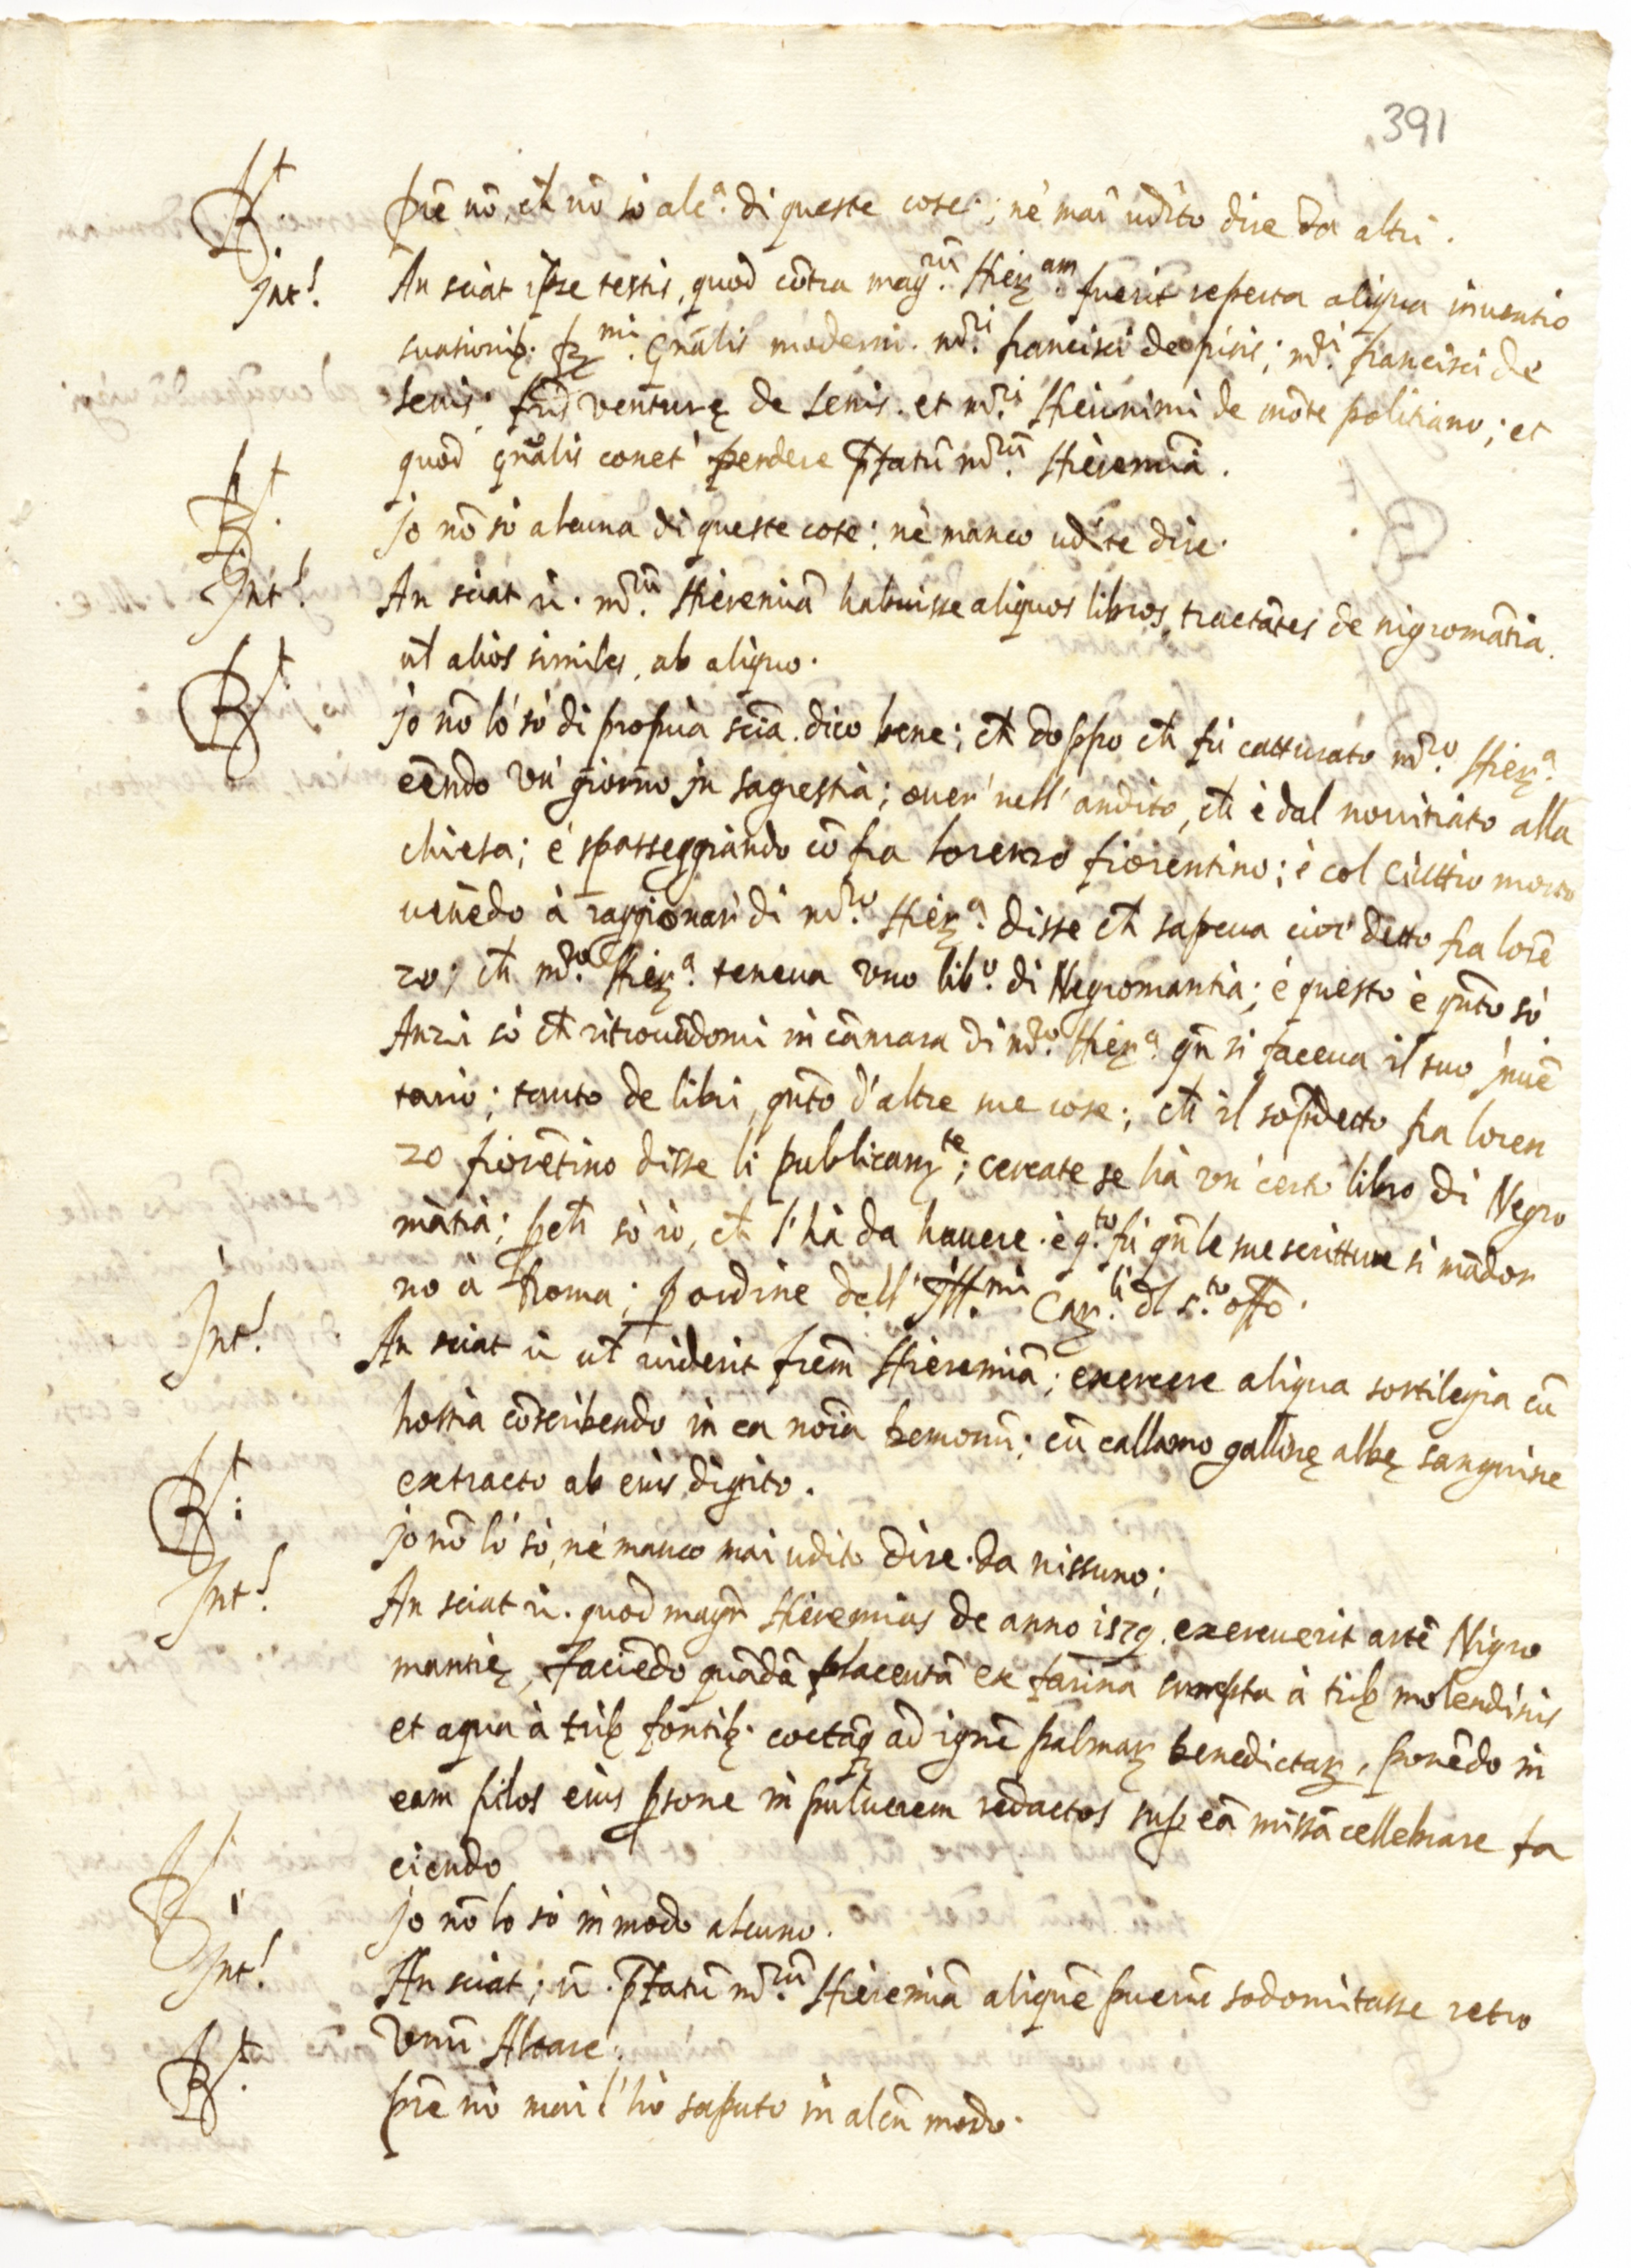 391
R.t prē nō, ch̄ nō so alc.a di queste cose; ne mai udito dire da altri.
Int.s An sciat ipse testis, quod cōtra mag.rū Hier.am fuerit reperta aliqua inventio
suasionib. r.mi gn̄alis moderni. m.ri francisci de pisis; m.ri francisci de
senis. venturę de senis. et m.ri Hieronimi de mōte politiano; et
quod gn̄alis conet' perdere p̄fatū m.rū Hieremiā.
R.t Jo nō so alcuna di queste cose: ne manco udite dire.
Int.s An sciat ū. m.rū Hieremiā habuisse aliquos libros tractātes de nigromātia.
ut̄ alios similes, ab aliquo.
R.t Jo nō lo so di propria sciā. dico bene; ch̄ doppo ch̄ fu catturato m.ro Hier.a
eēndo un' giorno in sagrestia; over' nell' andito, ch̄ è dal novitiato alla
chiesa; e spasseggiando cō fra lorenzo fiorentino; è col
venēdo à raggionar' di m.ro Hier.a disse ch̄ sapeva cioe detto fra lorē
zo; ch̄ m.ro Hier.a teneva uno lib.o di Negromantia; é questo è qn̄to so
Anzi so ch̄ ritrovādomi in cāmara di m.ro Hier.a qn̄ si faceva il suo invē
tario; tanto de libri, qn̄to d'altre sue cose; ch̄ il sop̄detto fra loren
zo fiorētino disse li publicam.te; cercate se hà un' certo libro di Negro
mātia; p̱ch̄ sò io, ch̄ l'hà da havere. è q.to fù qn̄ le sue scritture si mādor
no à Roma; p̱ ordine dell' Ill.mi Car.li dl s.to offo.
Int.s An sciat ū ut̄ viderit frēm Hieremiā; exercere aliqua sortilegia cū
hostia cōscribendo in ea nōia demonū; cū callamo gallinę albę sanguine
extracto ab eius digito.
R.t Jo nō lo sò, né manco mai udito dire. da nissuno;
Int.s An sciat ū. quod magr̄ Hieremias de anno 1579. exercuerit artē Nigro
mantię, faciēdo quādā placentā ex farina à trib molendinis
et aqua à trib fontib. coctāq ad ignē palmar benedictar, ponēdo in
eam pilos eius p̱sone in pulverem redactos sup̱ eā missā cellebrare fa
ciendo
R. Jo nō lo sò in modo alcuno.
Int.s An sciat; ū. p̄fatū m.rū Hieremiā aliquē puerū sodomitasse retro
unū Altare.
R.t prē nò mai l'hò saputo in alcū modo.